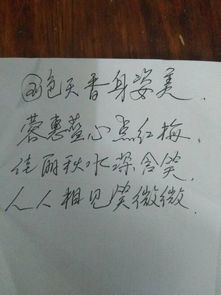 色天香身姿美.
蓉蕙兰心点红梅.
佳丽秋水深含笑.
人人相见笑微微.